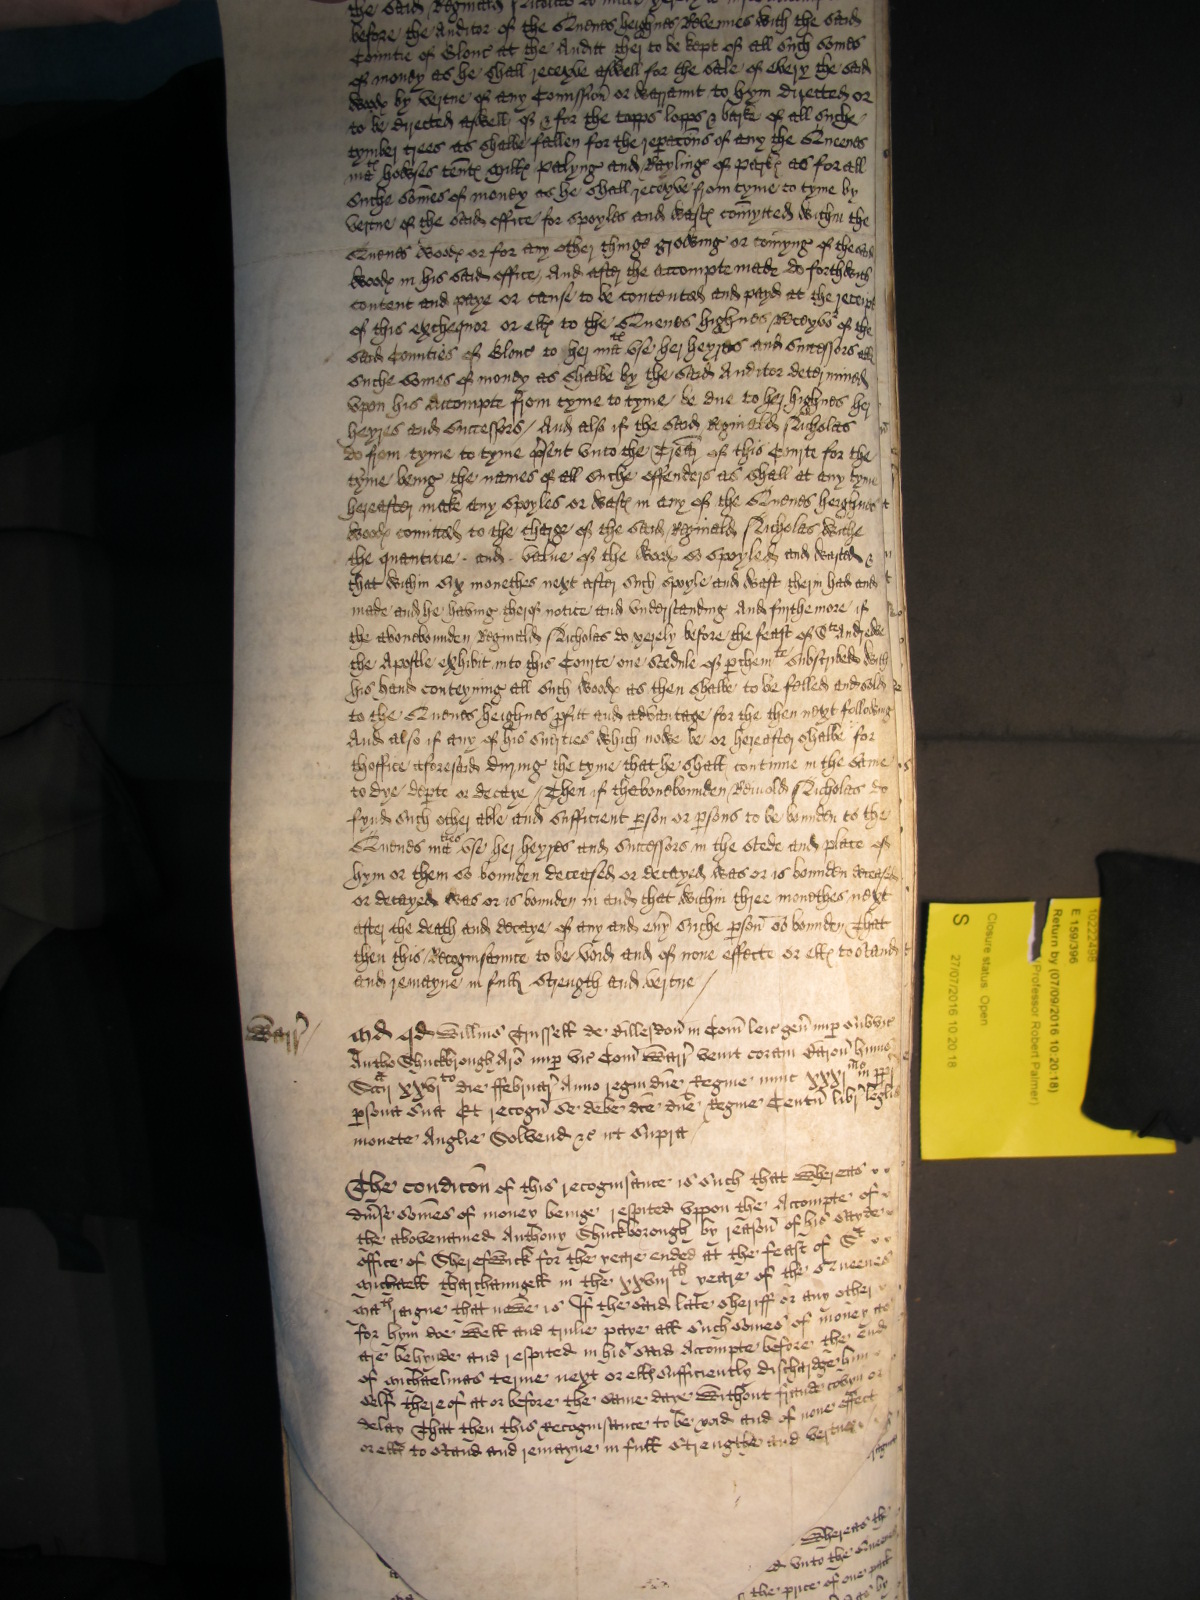 the said Reginald Nicholas
before the Auditor of the Quenes heighnes Revenues with the said
Countie of Glouc at the Auditt ther to be kept of all such somes
of money as he shall receyve aswell for the sale of every the said
woodꝭ by vertue of any Comission or warraunt to hym directed or
to be directed aswell of & for the topps lopps & barke of all suche
tymber trees as shalbe fallen for the repac̃ons of any the Queenes
maᵗⁱᵉ howses tenꝭt millꝭ Palyng and Rayling of parkꝭ as for all
suche somes of money as he shall receyve from tyme to tyme by
vertue of the said office for spoyles and wastꝭ comytted within the
Quenes woodꝭ or for any other thinge growing or comyng of the said
woodꝭ in his said office, And after the accompte made do forthwith
content and paye or cause to be contented and payd at the receipt
of this exchequor or ellꝭ to the Quenes highnes Receyvoʳ of the
said Counties of Glouc to her maᵗⁱᵉ use her heyres and successors all
suche somes of money as shalbe by the said Auditor determined
upon his Accompte from tyme to tyme be due to her highnes her
heyres and successors / And also if the said Reginald Nicholas
do from tyme to tyme p̃sent unto the Trẽr of this Courte for the
tyme being the names of all suche offenders as shall at any tyme
hereafter make any spoyles or wastꝭ in any of the Quenes heighnes
woodꝭ comitted to the charge of the said Reginald Nicholas withe
the quantitie and value of the woodꝭ so spoyled and wasted &
that within six monethes next after such spoyle and wast therin had and
made and he having therof notice and understanding And furthermore if
the abovebounden Reginald Nicholas do yerely before the feast of Sᵗᵉ Andrewe
the Apostle exhibit into this Courte one scedule of p̱chemᵗᵉ subscribed with
his hand conteynyng all such woodꝭ as then shalbe to be felled and sold
to the Quenes heighnes p̱fitt and advantage for the then next following
And also if any of his surties which nowe be or hereafter shalbe for
thoffice aforesaid during the tyme that he shall continue in the same
to dye dep̱te or decaye / Then if thabovebounden Reinold Nicholas do
fynd such other able and sufficient p̱son or p̱sons to be bounden to the
Quenes maᵗⁱᵉˢ use her heyres and successors in the stede and place of
hym or them so bounden deceased or decayed was or is bounden deceased
or decayed was or is bounden in and that within three monethes next
after the death and decaye of any and eṽy suche p̱son so bounden That
then this Recognisaunce to be void and of none effecte or ellꝭ to stande
and remayne in full strength and vertue /
Warr̃
Mᵈ qd Willms Turvell de Gillesdon in Com̃ Leic geñ nup̱ subvic
Antho Shuckbrough Ar̃ nup̱ vic Com̃ Warr̃ venit coram Baron̄ huius
Scc̃ij xxviᵗᵒ die Februar̃ Anno regni dñe Regine nunc xxxiᵐᵒ in p̱p̱r
p̱sona sua Et recogñ se debe dc̃e dñe Regine Centũ libr̃ leglis
monete Anglie Solvend &c ut supra
The condic̃on of this recognisaunce is such that Whereas
div̾se somes of money beinge respited uppon the Accompte of
the abovenamed Anthony Shuckborough by reason of his sayde
office of Sherefwick for the yeare ended at the feast of Sᵗ
Michaell tharchaungell in the xxviiiᵗʰ yeare of the Queenes
Maᵗⁱᵉ raigne that nowe is If the said late sheriff or any other
for hym doe well and trulie paye all such somes of money as
are behynde and respited in his said Accompte before the end
of Michaelmas terme next or ellꝭ sufficiently discharge him
self thereof at or before the same daye without fraude covyn or
delay That then this Recognisaunce to be void and of none effect
or ellꝭ to stand and remayne in full strengthe and vertue
Whereas the
ed unto the Queenes
the price of one pack
by
10222498
E 159/396
Return by (07/09/2016 10:20:18)
(Professor Robert Palmer)
Closure status: Open
27/07/2016 10:20:18
S